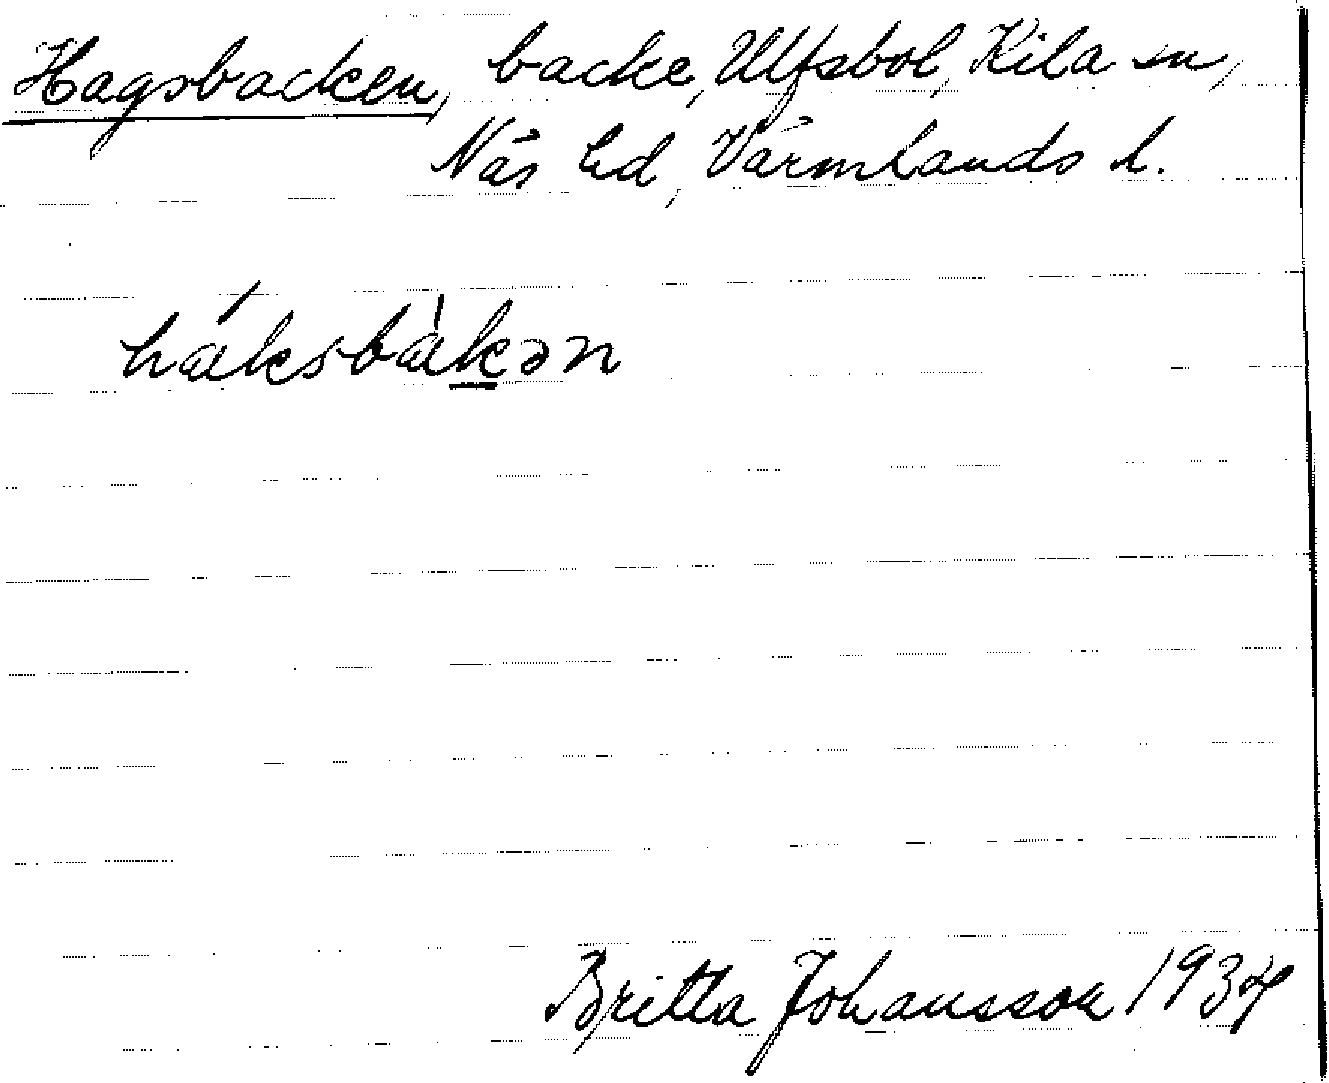 Hagsbacken, backe, Ulfsbol, Kila sn,
Näs hd, Värmlands l.
háksbàkən
Britta Johansson 1934